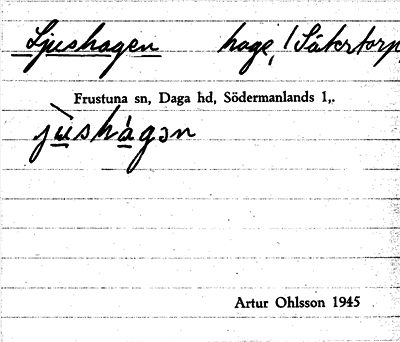 Ljushagen hage, i Säkertorp
Frustuna sn, Daga hd, Södermanlands l,.
jùshágən
Artur Ohlsson 1945